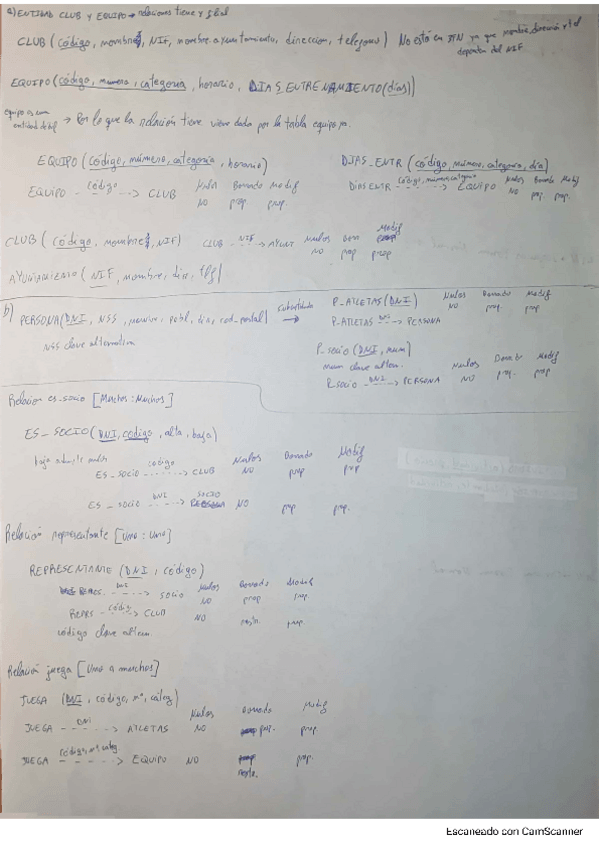 a) ENTIDAD CLUB Y EQUIPO → relaciones tiene y filial
CLUB (código, nombre, NIF, nombre ayuntamiento, dirección, telefono) No está en FN ya que nombre, dirección y tel
dependen del NIF
EQUIPO (código, número, categoría, horario, DIAS_ENTRENAMIENTO (días))
equipo es una
entidad débil → Por lo que la relación tiene viene dada por la tabla equipo ya.
EQUIPO (código, número, categoría, horario)
EQUIPO - código → CLUB Nulos Borrado Modif
NO prop prop.
DIAS_ENTR (código, número, categoría, día)
DIAS ENTR código, número, categoría → EQUIPO Nulos Borrado Modif
NO prop. prop.
CLUB (código, nombre, NIF)
CLUB - NIF → AYUNT Nulos Borr Modif
NO prop prop
AYUNTAMIENTO (NIF, nombre, dir, tlf)
b) PERSONA (DNI, NSS, nombre, pobl, dir, cod_postal) →
NSS clave alternativa
P_ATLETAS (DNI)
P_ATLETAS DNI → PERSONA Nulos Borrado Modif
NO prop. prop
P_SOCIO (DNI, num)
num clave altern.
P_SOCIO DNI → PERSONA Nulos Borrado Modif
NO prop. prop
Relación es_socio [Muchos:Muchos]
ES_SOCIO (DNI, código, alta, baja)
baja admite nulos
ES_SOCIO código → CLUB Nulos Borrado Modif
NO prop prop
ES_SOCIO DNI → SOCIO NO prop prop.
Relación representante [Uno:Uno]
REPRESENTANTE (DNI, código)
REPRES. DNI → SOCIO Nulos Borrado Modif
NO prop prop.
REPRS - código → CLUB NO restr. prop
código clave altern.
Relación juega [Uno a muchos]
JUEGA (DNI, código, nº, categ)
JUEGA DNI → ATLETAS Nulos Borrado Modif
NO prop. prop.
JUEGA código, nº, categ → EQUIPO NO restr. prop.
Escaneado con CamScanner